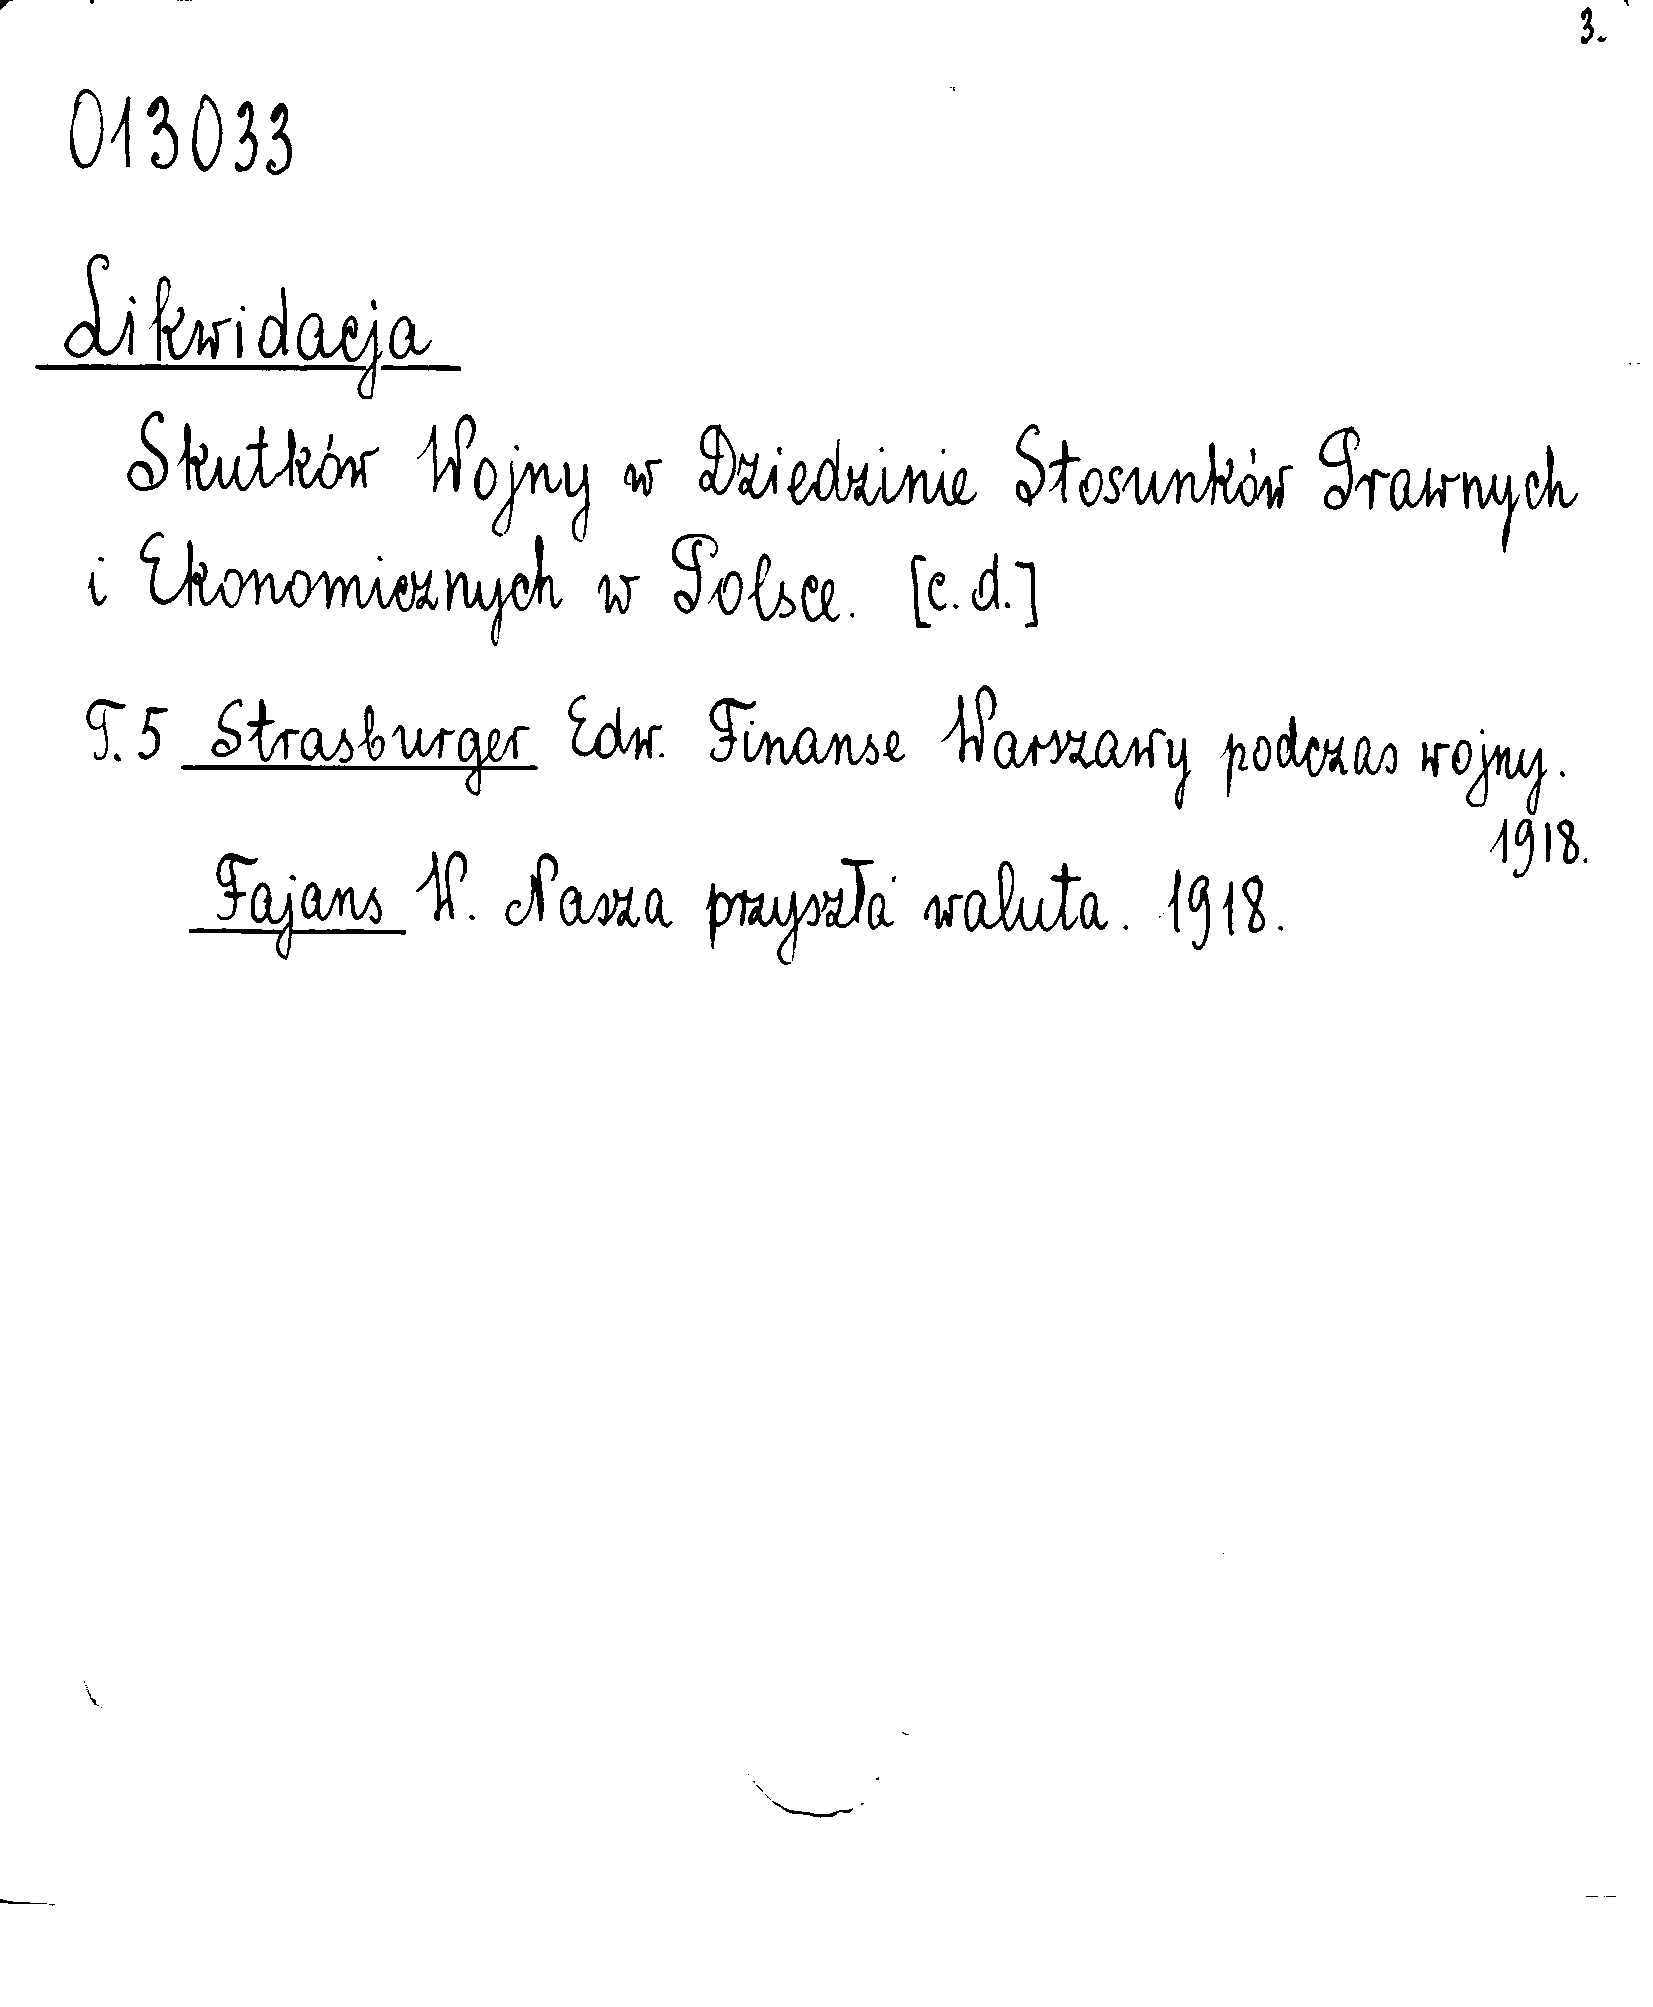 3.
013033
Likwidacja
Skutków Wojny w Dziedzinie Stosunków Prawnych
i Ekonomicznych w Polsce. [c.d.]
T. 5 Strasburger Edw. Finanse Warszawy podczas wojny.
1918.
Fajans W. Nasza przyszła waluta. 1918.